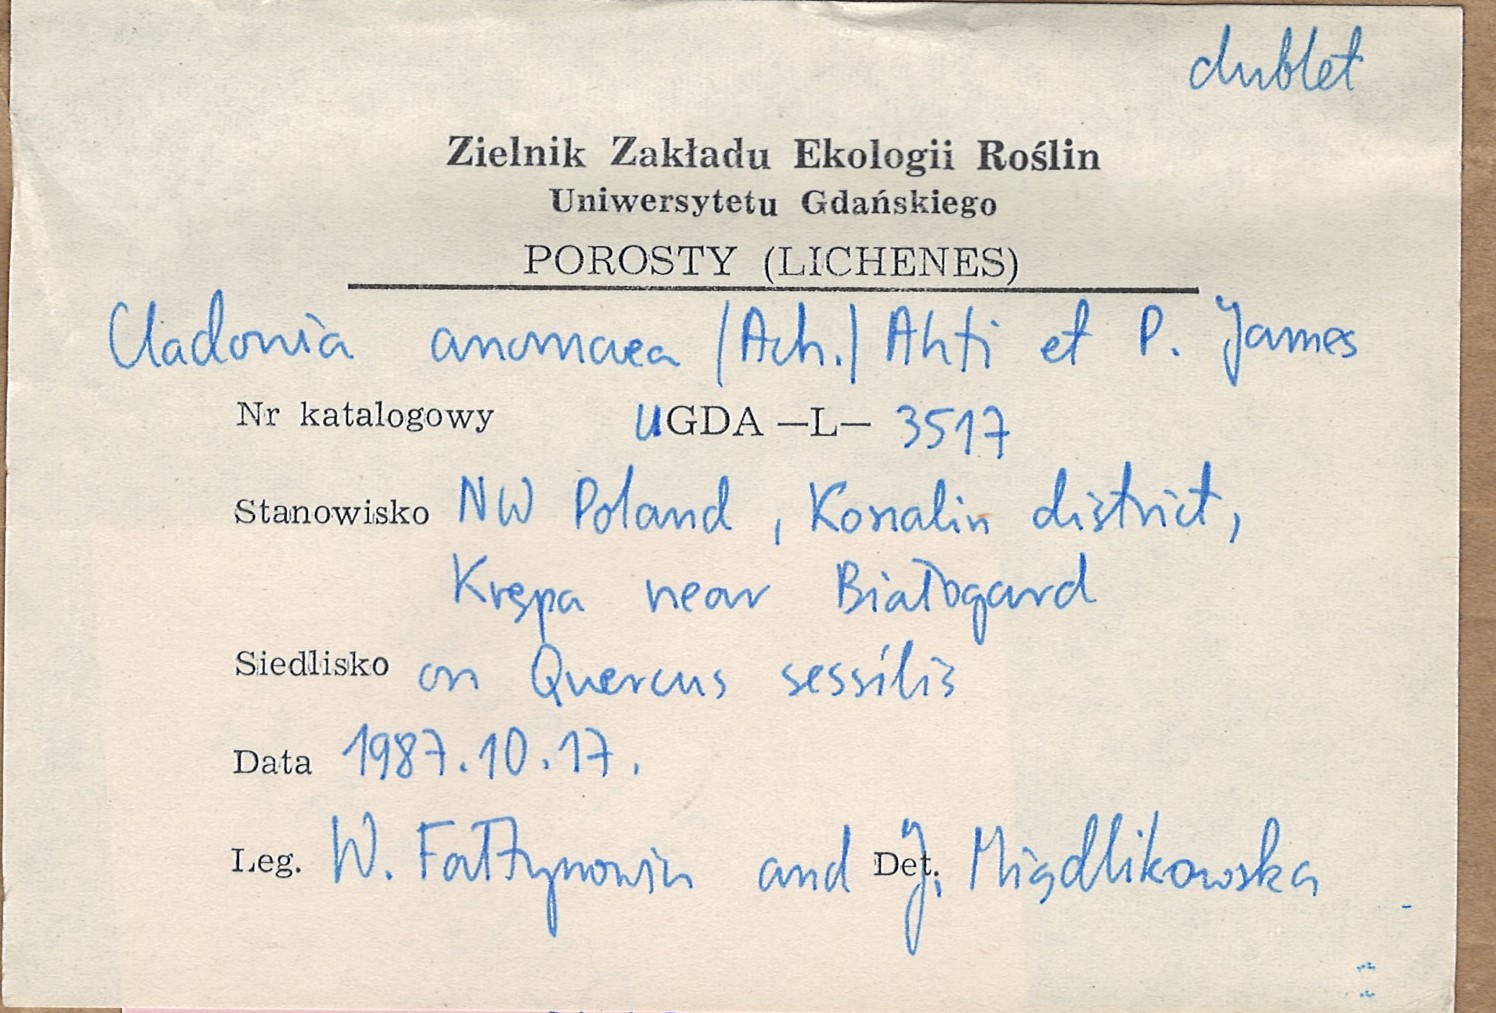 dublet
Zielnik Zakładu Ekologii Roślin
Uniwersytetu Gdańskiego
POROSTY (LICHENES)
Cladonia anomaea (Ach.) Ahti et P. James
Nr katalogowy UGDA —L— 3517
Stanowisko NW Poland, Koszalin district,
Krępa near Białogard
Siedlisko on Quercus sessilis
Data 1987.10.17.
Leg. W. Fałtynowicz and Det. J. Miądlikowska